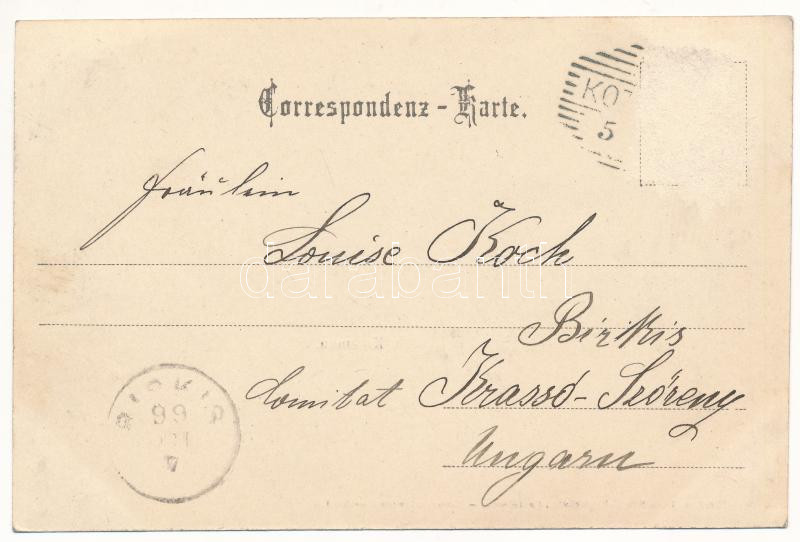 Correspondenz-Karte.
KO
5
Fräulein
Louise Koch
darabanth
Birkis
Comitat Krassó-Szöreny
Ungarn
BIRKIS
99
7